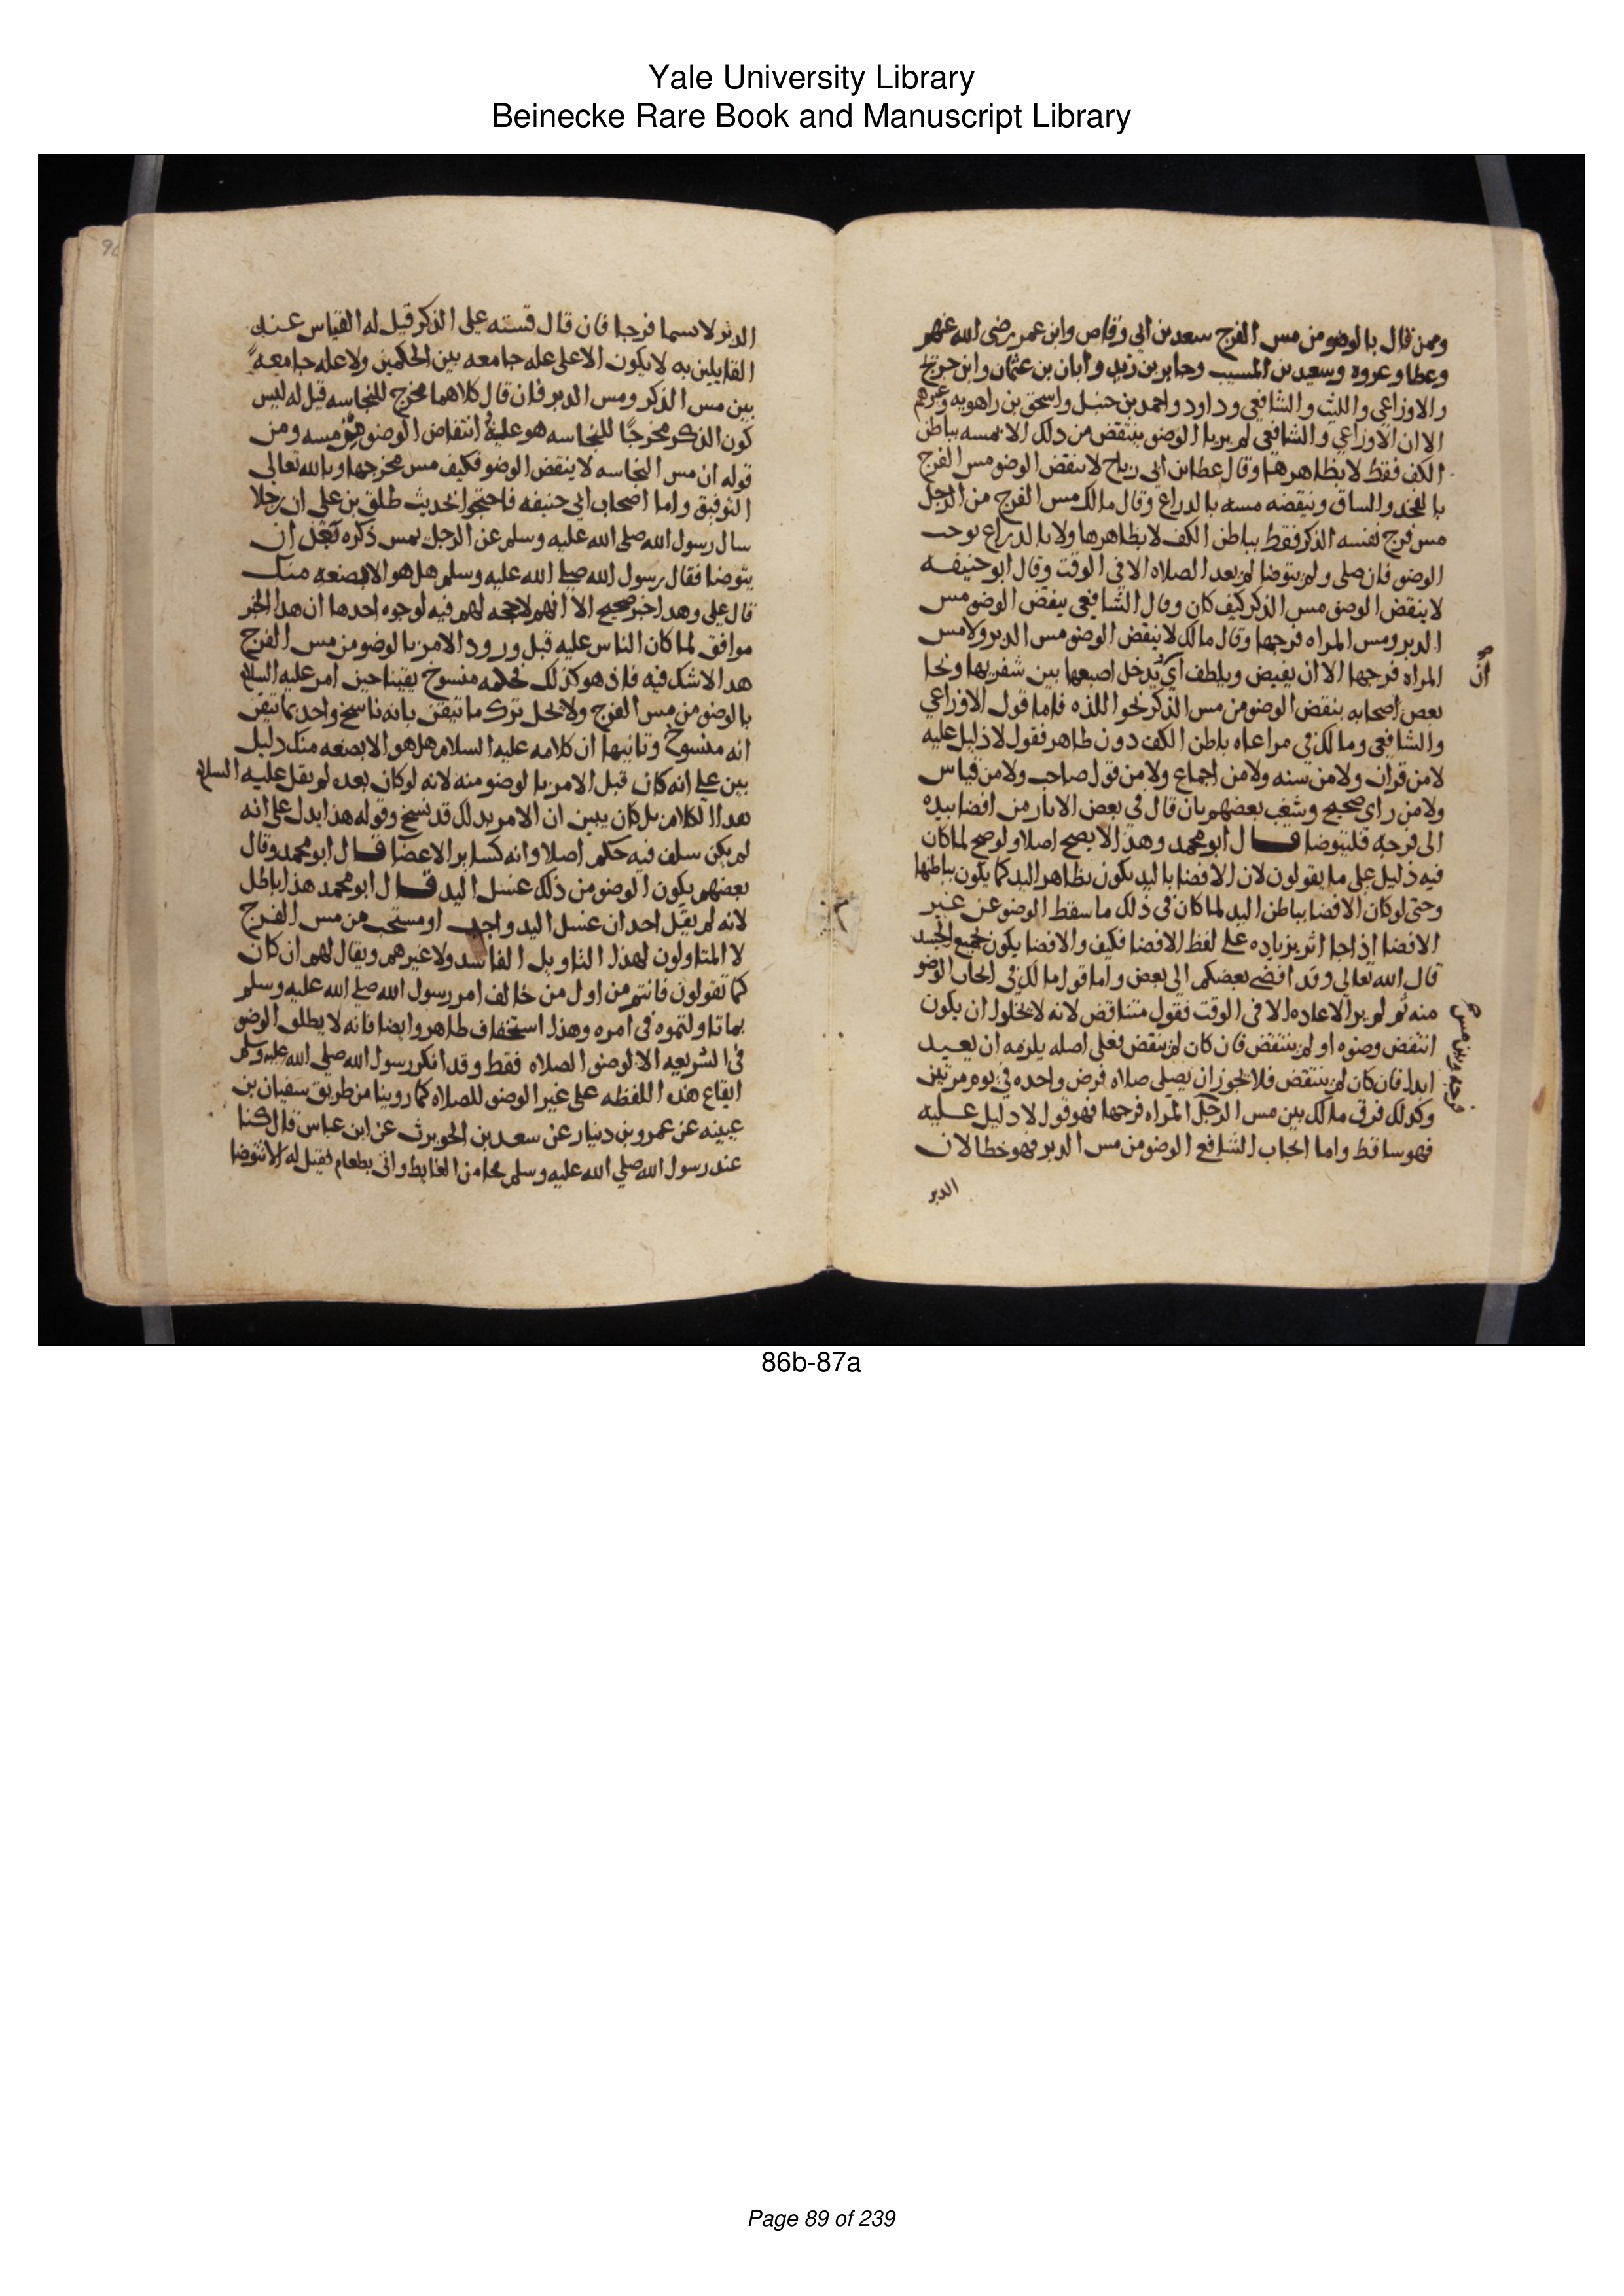 Yale University Library
Beinecke Rare Book and Manuscript Library
وممن قال بالوضو من مس الفرج سعد بن ابي وقاص وابن عمر رضي الله عنهم
وعطا وعروه وسعيد بن المسيب وجابر بن زيد وابان بن عثمان وابن جريج
والاوزاعي والليث والشافعي وداود واحمد بن حنبل واسحق بن راهويه وغيرهم
الا ان الاوزاعي والشافعي لم يريا الوضو ينتقض من ذلك الا بمسه بباطن
الكف فقط لا بظاهرها وقال عطا بن ابي رباح لا ينقض الوضو مس الفرج
بالفخذ والساق وينقضه مسه بالدراع وقال مالك مس الفرج من الرجل
مس فرج نفسه الذكر فقط بباطن الكف لا بظاهرها ولا بالدراع يوجب
الوضو فان صلى ولم يتوضا لم يعد الصلاه الا في الوقت وقال ابو حنيفه
لا ينقض الوضو مس الذكر كيف كان وقال الشافعي ينقض الوضو مس
الدبر ومس المراه فرجها وقال مالك لا ينقض الوضو مس الدبر ولا مس
المراه فرجها الا ان يفيض ويلطف اي يدخل اصبعها بين شفريها ونحا
ان
بعض اصحابه بنقض الوضو من مس الذكر نحو اللذه فاما قول الاوزاعي
والشافعي ومالك في مراعاه باطن الكف دون ظاهر فقول لا دليل عليه
لا من قران ولا من سنه ولا من اجماع ولا من قول صاحب ولا من قياس
ولا من راي صحيح وشغب بعضهم بان قال في بعض الاثار من افضا بيده
الى فرجه فليتوضا قال ابو محمد وهذا لا يصح اصلا ولو صح لما كان
فيه دليل على ما يقولون لان الافضا باليد يكون بظاهر اليد كما يكون بباطنها
وحتى لو كان الافضا بباطن اليد لما كان في ذلك ما سقط الوضو عن غير
الافضا اذا جا اثر بزياده على لفظ الافضا فكيف والافضا يكون لجميع الجسد
قال الله تعالى وقد افضى بعضكم الى بعض واما قول مالك في ايجاب الوضو
منه ثم لم ير الاعاده الا في الوقت فقول متناقض لانه لا يخلوا ان يكون
انتقض وضوه او لم ينتقض فان كان انتقض فعلى اصله يلزمه ان يعيد
ابدا فان كان لم ينتقض فلا يجوز ان يصلي صلاه فرض واحده في يوم مرتين
وكذلك فرق مالك بين مس الرجل المراه فرجها فهو قول لا دليل عليه
فرجه وبين مس
فهو ساقط واما ايجاب الشافع الوضو من مس الدبر فهو خطا لان
الدبر
الدبر لا يسما فرجا فان قال قسته على الذكر قيل له القياس عند
القايلين به لا يكون الا على عله جامعه بين الحكمين ولا عله جامعه
بين مس الذكر ومس الدبر فان قال كلاهما مخرج للنجاسه قيل له ليس
كون الذكر مخرجا للنجاسه هو علة انتقاض الوضو من مسه ومن
قوله ان مس النجاسه لا ينقض الوضو فكيف مس مخرجها وبالله تعالى
التوفيق واما اصحاب ابي حنيفه فاحتجوا بحديث طلق بن علي ان رجلا
سال رسول الله صلى الله عليه وسلم عن الرجل يمس ذكره بعد ان
يتوضا فقال رسول الله صلى الله عليه وسلم هل هو الا بضعه منك
قال علي وهدا خبر صحيح الا انهم لا حجه لهم فيه لوجوه احدها ان هدا الخبر
موافق لما كان الناس عليه قبل ورود الامر بالوضو من مس الفرج
هدا لا شك فيه فاذ هو كذلك فحكمه منسوخ يقينا حين امر عليه السلام
بالوضو من مس الفرج ولا يحل ترك ما تيقن بانه ناسخ واخد بما تيقن
انه منسوخ وثانيها ان كلامه عليه السلام هل هو الا بضعه منك دليل
بين على انه كان قبل الامر بالوضو منه لانه لو كان بعده لم يقل عليه السلام
هدا الكلام بل كان يبين ان الامر بدلك قد نسخ وقوله هذا يدل على انه
لم يكن سلف فيه حكم اصلا وانه كساير الاعضا قال ابو محمد وقال
بعضهم يكون الوضو من ذلك غسل اليد قال ابو محمد هذا باطل
لانه لم يقل احد ان غسل اليد واجب او مستحب من مس الفرج
لا المتاولون لهذا التاويل الفاسد ولا غيرهم ويقال لهم ان كان
كما تقولون فانتم من اول من خالف امر رسول الله صلى الله عليه وسلم
بما تاولتموه في امره وهذا استخفاف ظاهر وايضا فانه لا يطلق الوضو
في الشريعه الا لوضو الصلاه فقط وقد انكر رسول الله صلى الله عليه وسلم
ايقاع هذه اللفظه على غير الوضو للصلاه كما روينا من طريق سفيان بن
عيينه عن عمرو بن دينار عن سعد بن الحويرث عن ابن عباس قال كنا
عند رسول الله صلى الله عليه وسلم فجا من الغايط واتى بطعام فقيل له الا تتوضا
86b-87a
Page 89 of 239